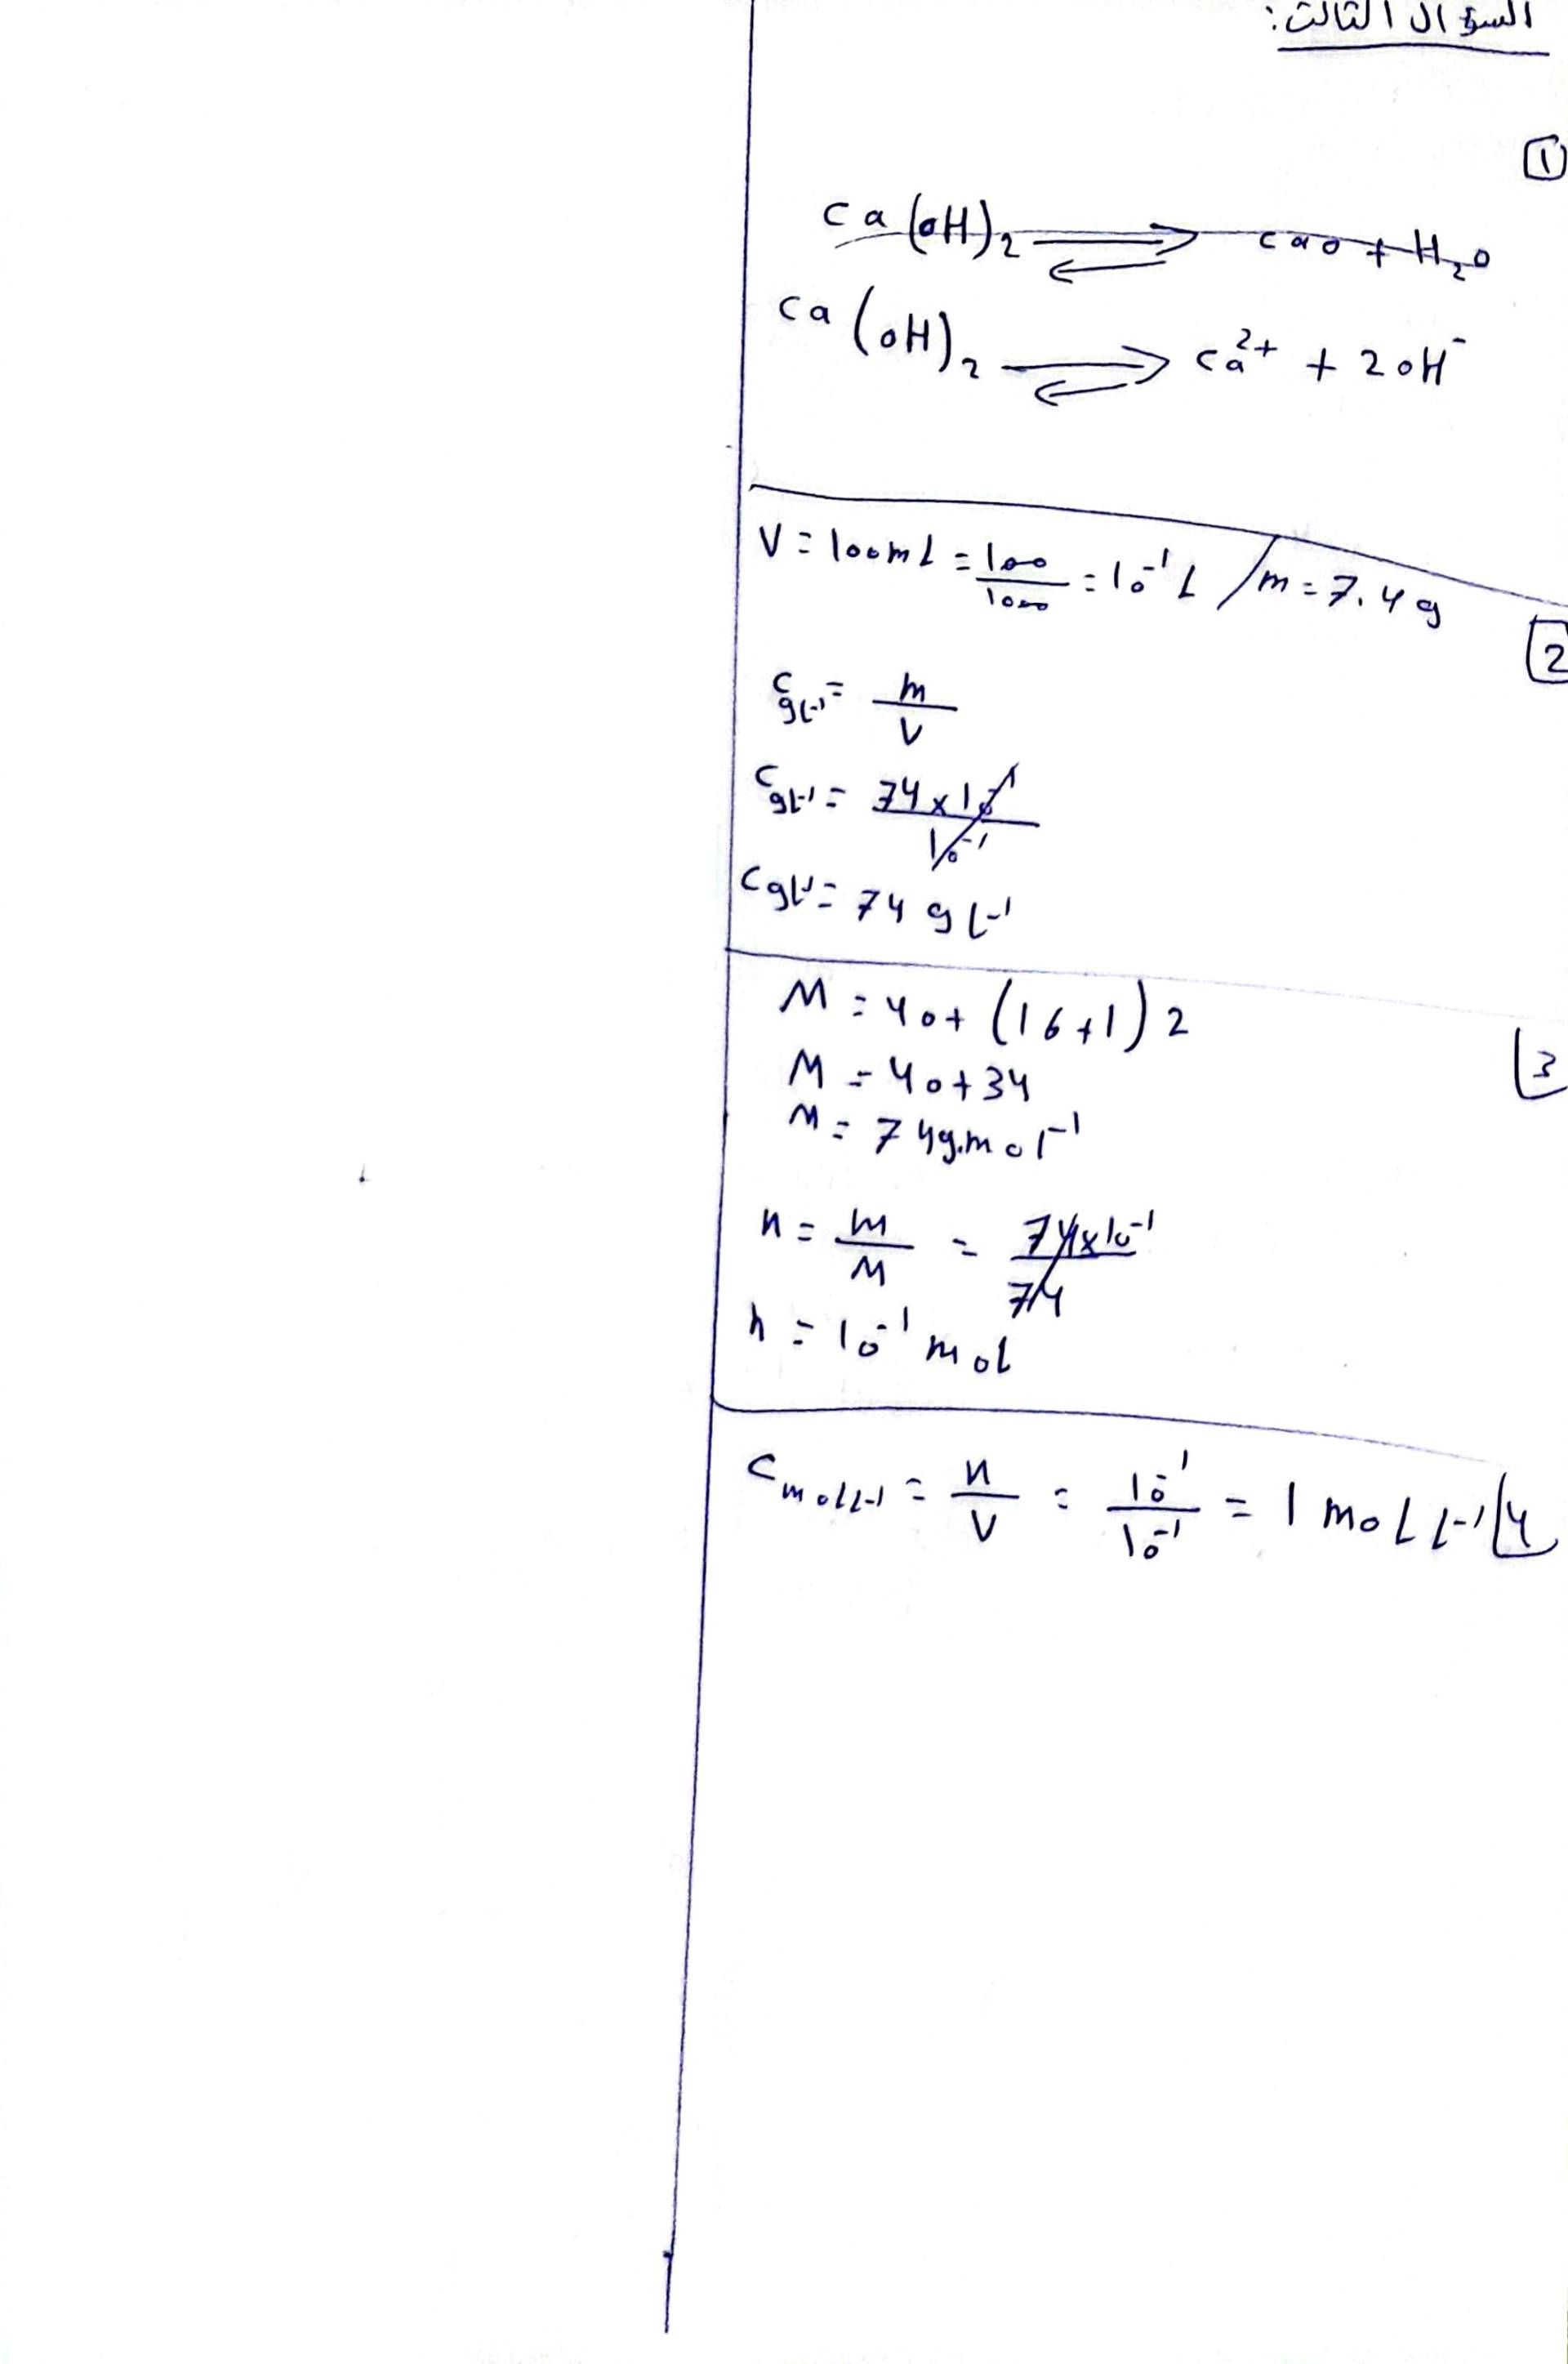 السؤال الثالث:
1
Ca(OH)₂ ⇌ CaO + H₂O
Ca(OH)₂ ⇌ Ca²⁺ + 2OH⁻
V = 100mL = 100/1000 = 10⁻¹ L / m = 7.4 g
2
C gL⁻¹ = m/V
C gL⁻¹ = 74 × 10⁻¹ / 10⁻¹
C gL⁻¹ = 74 g L⁻¹
M = 40 + (16 + 1) 2
3
M = 40 + 34
M = 74 g.mol⁻¹
n = m/M = 74 × 10⁻¹ / 74
n = 10⁻¹ mol
C mol L⁻¹ = n/V = 10⁻¹/10⁻¹ = 1 mol L⁻¹ 4